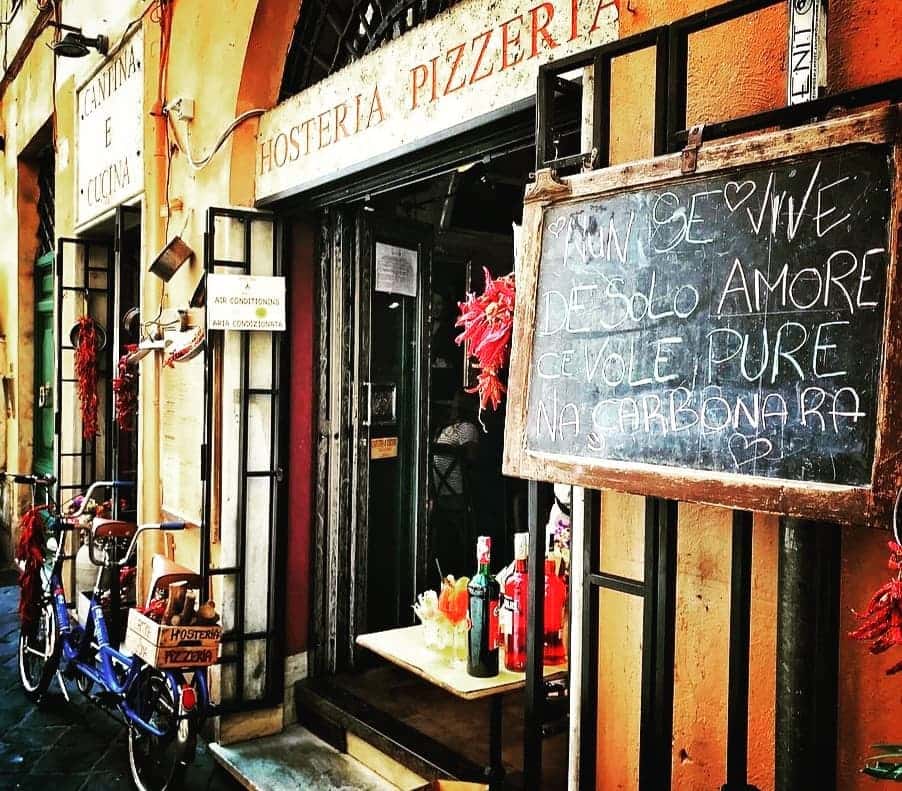 CANTINA
E
CUCINA
HOSTERIA PIZZERIA
AIR CONDITIONING
ARIA CONDIZIONATA
NUN SE VIVE
DE SOLO AMORE
CE VOLE PURE
NA CARBONARA
HOSTERIA
PIZZERIA